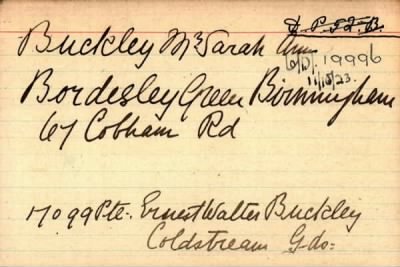 D. P. 5 & B.
Buckley Mrs Sarah Ann
6/D/19996
11/5/23.
Bordesley Green Birmingham
67 Cobham Rd
17099 Pte. Ernest Walter Buckley
Coldstream Gds: